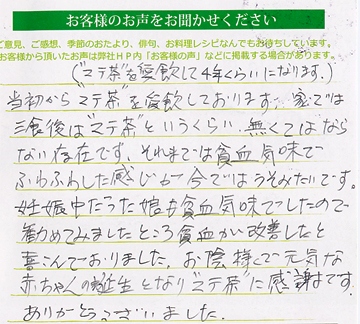 お客様のお声をお聞かせください
ご意見、ご感想、季節のおたより、俳句、お料理レシピなんでもお待ちしています。
お客様から頂いたお声は弊社HP内「お客様の声」などに掲載する場合があります。
(“マテ茶”を愛飲して4年くらいになります。)
当初から“マテ茶”を愛飲しております。家では
三食後は“マテ茶”というくらい、無くてはなら
ない存在です。それまでは貧血気味で
ふわふわした感じが今ではうそみたいです。
妊娠中だった娘も貧血気味でしたので
勧めてみましたところ貧血が改善したと
喜んでおりました。お陰様で元気な
赤ちゃんの誕生となり“マテ茶”に感謝です。
ありがとうございました。